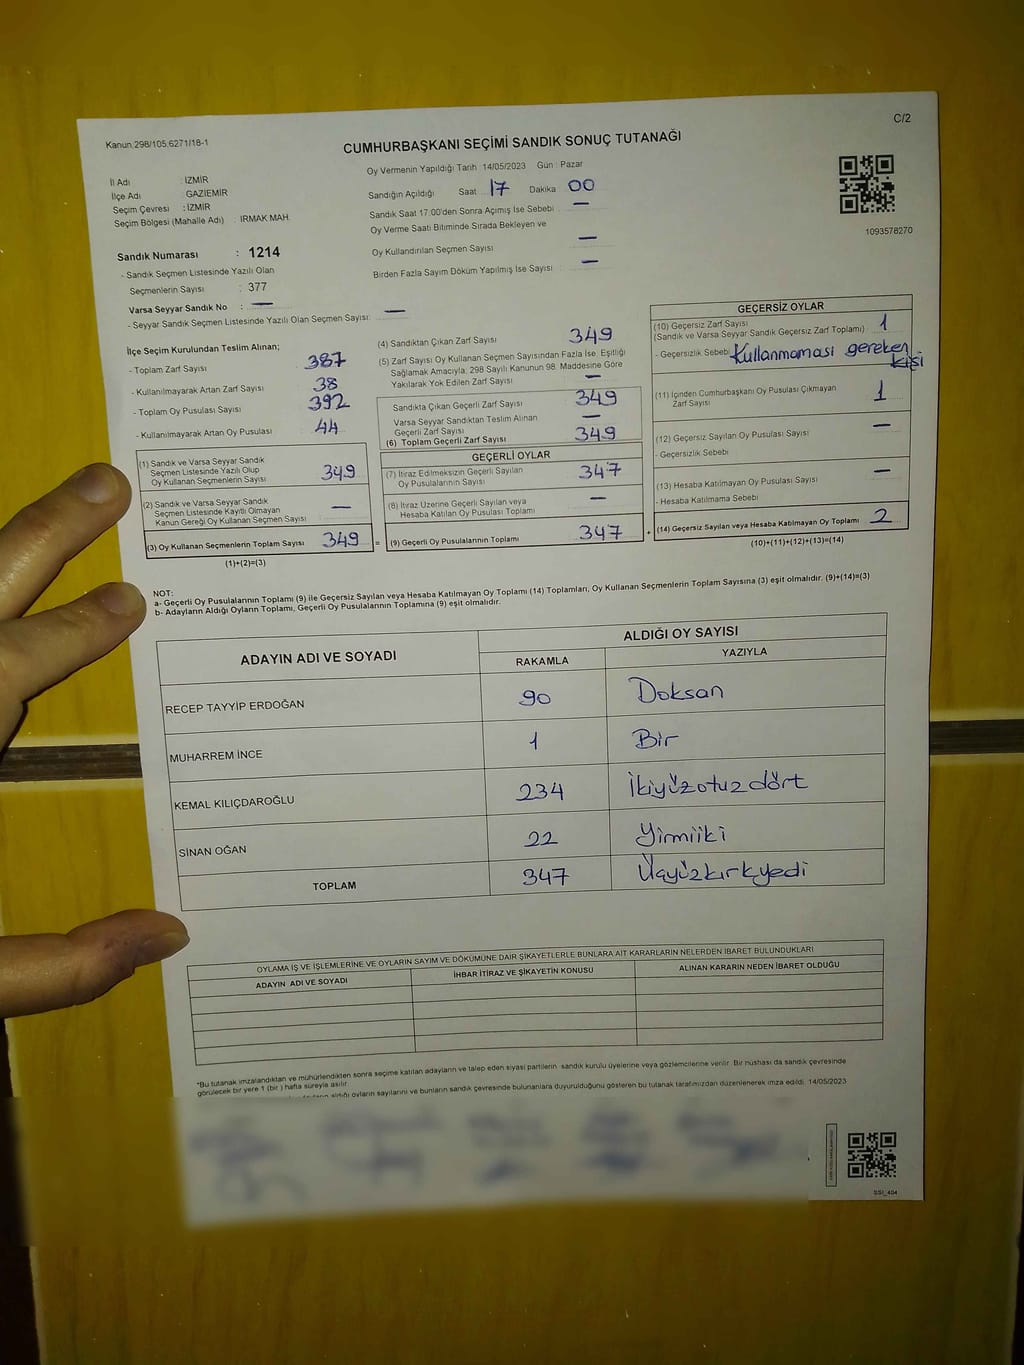 C/2
Kanun.298/105;6271/18-1
CUMHURBAŞKANI SEÇİMİ SANDIK SONUÇ TUTANAĞI
İl Adı : İZMİR
İlçe Adı : GAZİEMİR
Seçim Çevresi : İZMİR
Seçim Bölgesi (Mahalle Adı) : IRMAK MAH.
Oy Vermenin Yapıldığı Tarih 14/05/2023 Gün : Pazar
Sandığın Açıldığı Saat 17 Dakika 00
Sandık Saat 17:00'den Sonra Açımış İse Sebebi : —
Oy Verme Saati Bitiminde Sırada Bekleyen ve
Oy Kullandırılan Seçmen Sayısı —
Birden Fazla Sayım Döküm Yapılmış İse Sayısı : —
1093578270
Sandık Numarası : 1214
- Sandık Seçmen Listesinde Yazılı Olan
Seçmenlerin Sayısı : 377
Varsa Seyyar Sandık No : —
- Seyyar Sandık Seçmen Listesinde Yazılı Olan Seçmen Sayısı: —
İlçe Seçim Kurulundan Teslim Alınan;
- Toplam Zarf Sayısı : 387
- Kullanılmayarak Artan Zarf Sayısı : 38
- Toplam Oy Pusulası Sayısı : 392
- Kullanılmayarak Artan Oy Pusulası : 44
(1) Sandık ve Varsa Seyyar Sandık
Seçmen Listesinde Yazılı Olup
Oy Kullanan Seçmenlerin Sayısı : 349
(2) Sandık ve Varsa Seyyar Sandık
Seçmen Listesinde Kayıtlı Olmayan
Kanun Gereği Oy Kullanan Seçmen Sayısı : —
(3) Oy Kullanan Seçmenlerin Toplam Sayısı 349
(1)+(2)=(3)
(4) Sandıktan Çıkan Zarf Sayısı : 349
(5) Zarf Sayısı Oy Kullanan Seçmen Sayısından Fazla İse, Eşitliği
Sağlamak Amacıyla; 298 Sayılı Kanunun 98. Maddesine Göre
Yakılarak Yok Edilen Zarf Sayısı : —
Sandıkta Çıkan Geçerli Zarf Sayısı : 349
Varsa Seyyar Sandıktan Teslim Alınan
Geçerli Zarf Sayısı : —
(6) Toplam Geçerli Zarf Sayısı : 349
GEÇERLİ OYLAR
(7) İtiraz Edilmeksizin Geçerli Sayılan
Oy Pusulalarının Sayısı : 347
(8) İtiraz Üzerine Geçerli Sayılan veya
Hesaba Katılan Oy Pusulası Toplamı : —
= (9) Geçerli Oy Pusulalarının Toplamı : 347
GEÇERSİZ OYLAR
(10) Geçersiz Zarf Sayısı
(Sandık ve Varsa Seyyar Sandık Geçersiz Zarf Toplamı) : 1
- Geçersizlik Sebebi Kullanmaması gereken
kişi
(11) İçinden Cumhurbaşkanı Oy Pusulası Çıkmayan
Zarf Sayısı : 1
(12) Geçersiz Sayılan Oy Pusulası Sayısı : —
- Geçersizlik Sebebi
(13) Hesaba Katılmayan Oy Pusulası Sayısı : —
- Hesaba Katılmama Sebebi
+ (14) Geçersiz Sayılan veya Hesaba Katılmayan Oy Toplamı : 2
(10)+(11)+(12)+(13)=(14)
NOT:
a- Geçerli Oy Pusulalarının Toplamı (9) ile Geçersiz Sayılan veya Hesaba Katılmayan Oy Toplamı (14) Toplamları, Oy Kullanan Seçmenlerin Toplam Sayısına (3) eşit olmalıdır. (9)+(14)=(3)
b- Adayların Aldığı Oyların Toplamı, Geçerli Oy Pusulalarının Toplamına (9) eşit olmalıdır.
ADAYIN ADI VE SOYADI
ALDIĞI OY SAYISI
RAKAMLA YAZIYLA
RECEP TAYYİP ERDOĞAN 90 Doksan
MUHARREM İNCE 1 Bir
KEMAL KILIÇDAROĞLU 234 İkiyüzotuzdört
SİNAN OĞAN 22 Yirmiiki
TOPLAM 347 Üçyüzkırkyedi
OYLAMA İŞ VE İŞLEMLERİNE VE OYLARIN SAYIM VE DÖKÜMÜNE DAİR ŞİKAYETLERLE BUNLARA AİT KARARLARIN NELERDEN İBARET BULUNDUKLARI
ADAYIN ADI VE SOYADI İHBAR İTİRAZ VE ŞİKAYETİN KONUSU ALINAN KARARIN NEDEN İBARET OLDUĞU
*Bu tutanak imzalandıktan ve mühürlendikten sonra seçime katılan adayların ve talep eden siyasi partilerin sandık kurulu üyelerine veya gözlemcilerine verilir. Bir nüshası da sandık çevresinde
görülecek bir yere 1 (bir ) hafta süreyle asılır.
aldığı oyların sayılarını ve bunların sandık çevresinde bulunanlara duyurulduğunu gösteren bu tutanak tarafımızdan düzenlenerek imza edildi. 14/05/2023
SSI_404